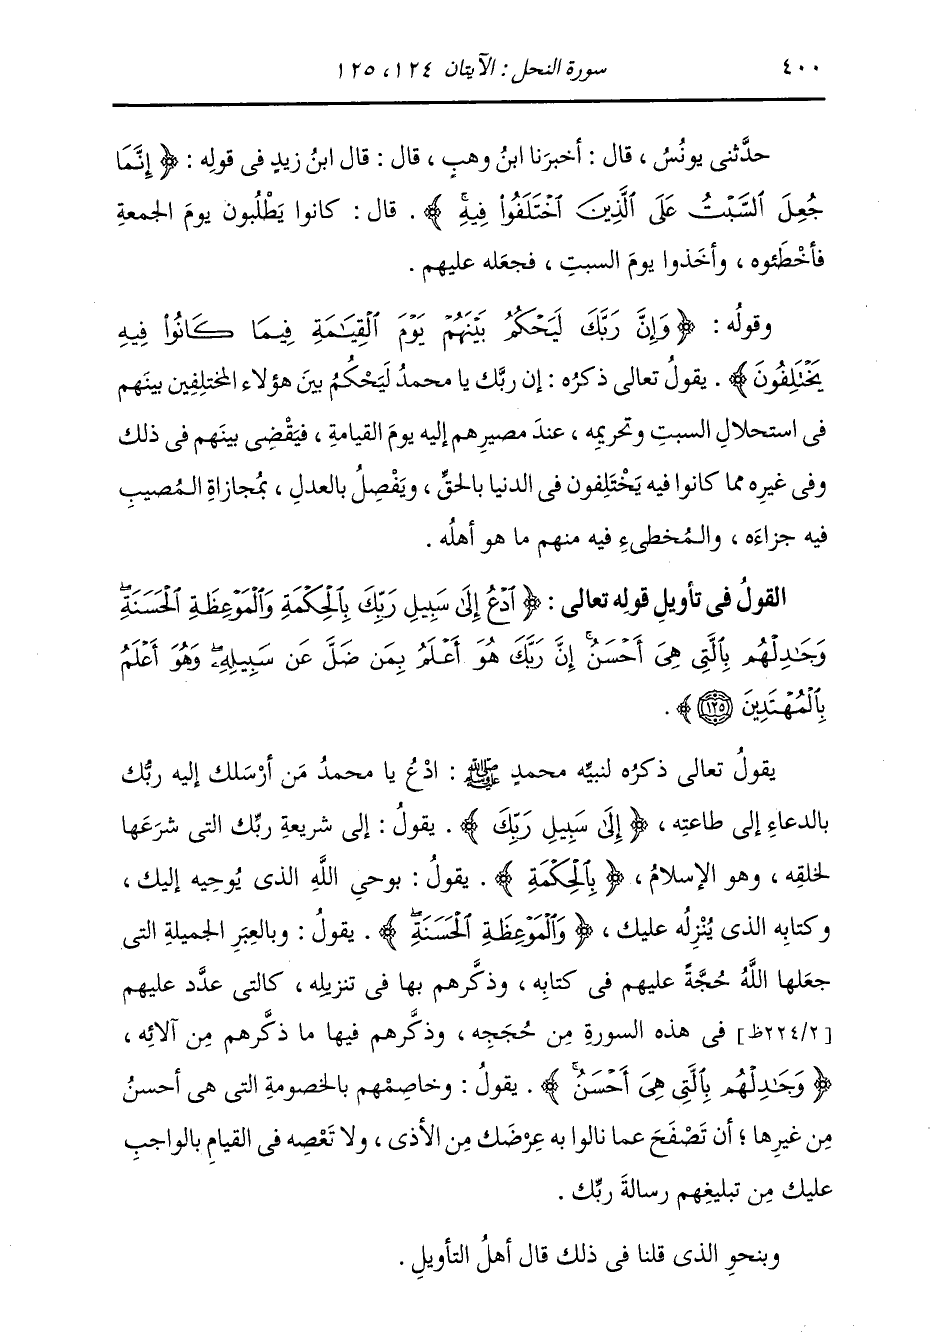 ٤٠٠ سورة النحل : الآيتان ١٢٤، ١٢٥
حدَّثنى يونُسُ ، قال : أخبرَنا ابنُ وهبٍ ، قال : قال ابنُ زيدٍ فى قولِه : ﴿ إِنَّمَا
جُعِلَ ٱلسَّبْتُ عَلَى ٱلَّذِينَ ٱخْتَلَفُوا۟ فِيهِۚ ﴾ . قال : كانوا يَطْلُبون يومَ الجمعةِ
فأخْطَئوه ، وأخَذوا يومَ السبتِ ، فجعَله عليهم .
وقولُه : ﴿ وَإِنَّ رَبَّكَ لَيَحْكُمُ بَيْنَهُمْ يَوْمَ ٱلْقِيَٰمَةِ فِيمَا كَانُوا۟ فِيهِ
يَخْتَلِفُونَ ﴾ . يقولُ تعالى ذكرُه : إن ربَّك يا محمدُ لَيَحْكُمُ بينَ هؤلاء المختلِفِين بينَهم
فى استحلالِ السبتِ وتحريمِه ، عندَ مصيرِهم إليه يومَ القيامةِ ، فيَقْضِى بينَهم فى ذلك
وفى غيرِه مما كانوا فيه يَخْتَلِفون فى الدنيا بالحقِّ ، ويَفْصِلُ بالعدلِ ، بمُجازاةِ المُصيبِ
فيه جزاءَه ، والمُخطىءِ فيه منهم ما هو أهلُه .
القولُ فى تأويلِ قولِه تعالى : ﴿ ٱدْعُ إِلَىٰ سَبِيلِ رَبِّكَ بِٱلْحِكْمَةِ وَٱلْمَوْعِظَةِ ٱلْحَسَنَةِۖ
وَجَٰدِلْهُم بِٱلَّتِى هِىَ أَحْسَنُۚ إِنَّ رَبَّكَ هُوَ أَعْلَمُ بِمَن ضَلَّ عَن سَبِيلِهِۦۖ وَهُوَ أَعْلَمُ
بِٱلْمُهْتَدِينَ ١٢٥ ﴾ .
يقولُ تعالى ذكرُه لنبيِّه محمدٍ ﷺ : ادْعُ يا محمدُ مَن أرْسَلك إليه ربُّك
بالدعاءِ إلى طاعتِه ، ﴿ إِلَىٰ سَبِيلِ رَبِّكَ ﴾ . يقولُ : إلى شريعةِ ربِّك التى شرَعَها
لخلقِه ، وهو الإسلامُ ، ﴿ بِٱلْحِكْمَةِ ﴾ . يقولُ : بوحيِ اللَّهِ الذى يُوحِيه إليك ،
وكتابِه الذى يُنْزِلُه عليك ، ﴿ وَٱلْمَوْعِظَةِ ٱلْحَسَنَةِۖ ﴾ . يقولُ : وبالعِبَرِ الجميلةِ التى
جعَلها اللَّهُ حُجَّةً عليهم فى كتابِه ، وذكَّرهم بها فى تنزيلِه ، كالتى عدَّد عليهم
[٢٢٤/٢ظ] فى هذه السورةِ مِن حُجَجِه ، وذكَّرهم فيها ما ذكَّرهم مِن آلائِه ،
﴿ وَجَٰدِلْهُم بِٱلَّتِى هِىَ أَحْسَنُۚ ﴾ . يقولُ : وخاصِمْهم بالخصومةِ التى هى أحسنُ
مِن غيرِها ؛ أن تَصْفَحَ عما نالوا به عِرْضَك مِن الأذى ، ولا تَعْصِه فى القيامِ بالواجبِ
عليك مِن تبليغِهم رسالةَ ربِّك .
وبنحوِ الذى قلنا فى ذلك قال أهلُ التأويلِ .